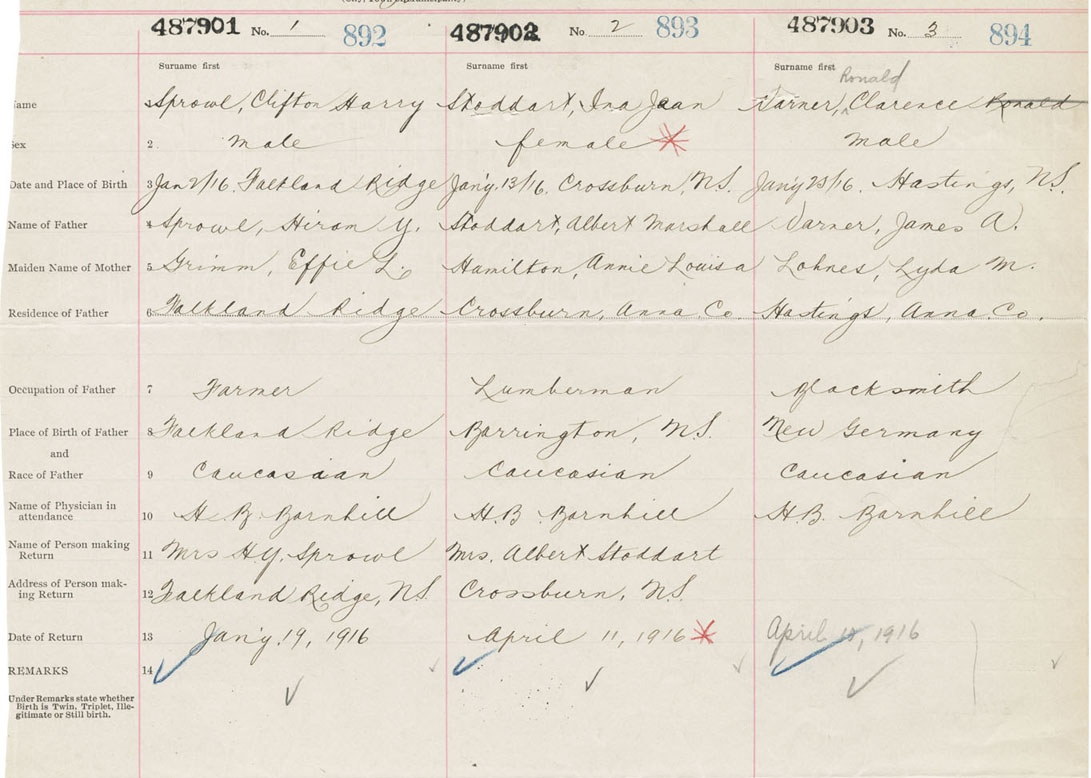 487901 No. 1 892 487902 No 2 893 487903 No. 3 894
Surname first Surname first Surname first Ronald
ame Sprowl, Clifton Harry Stoddart, Ina Jean Varner, Clarence Ronald
Sex 2 male female male
Date and Place of Birth 3 Jan 2/16. Falkland Ridge Jan'y. 13/16. Crossburn, N.S. Jan'y 23/16. Hastings, N.S.
Name of Father 4 Sprowl, Hiram Y. Stoddart, Albert Marshall Varner, James A.
Maiden Name of Mother 5 Grimm, Effie L. Hamilton, Annie Louisa Lohnes, Lyda M.
Residence of Father 6 Falkland Ridge Crossburn, Anna. Co. Hastings, Anna. Co.
Occupation of Father 7 Farmer Lumberman Blacksmith
Place of Birth of Father 8 Falkland Ridge Barrington, N.S. New Germany
and
Race of Father 9 Caucasian Caucasian Caucasian
Name of Physician in
attendance 10 H B Barnhill H.B Barnhill H.B. Barnhill
Name of Person making
Return 11 Mrs H.Y. Sprowl Mrs. Albert Stoddart
Address of Person mak-
ing Return 12 Falkland Ridge, N.S. Crossburn, N.S.
Date of Return 13 Jan'y. 19, 1916 April 11, 1916 April 1916
REMARKS 14
Under Remarks state whether
Birth is Twin, Triplet, Ille-
gitimate or Still birth.